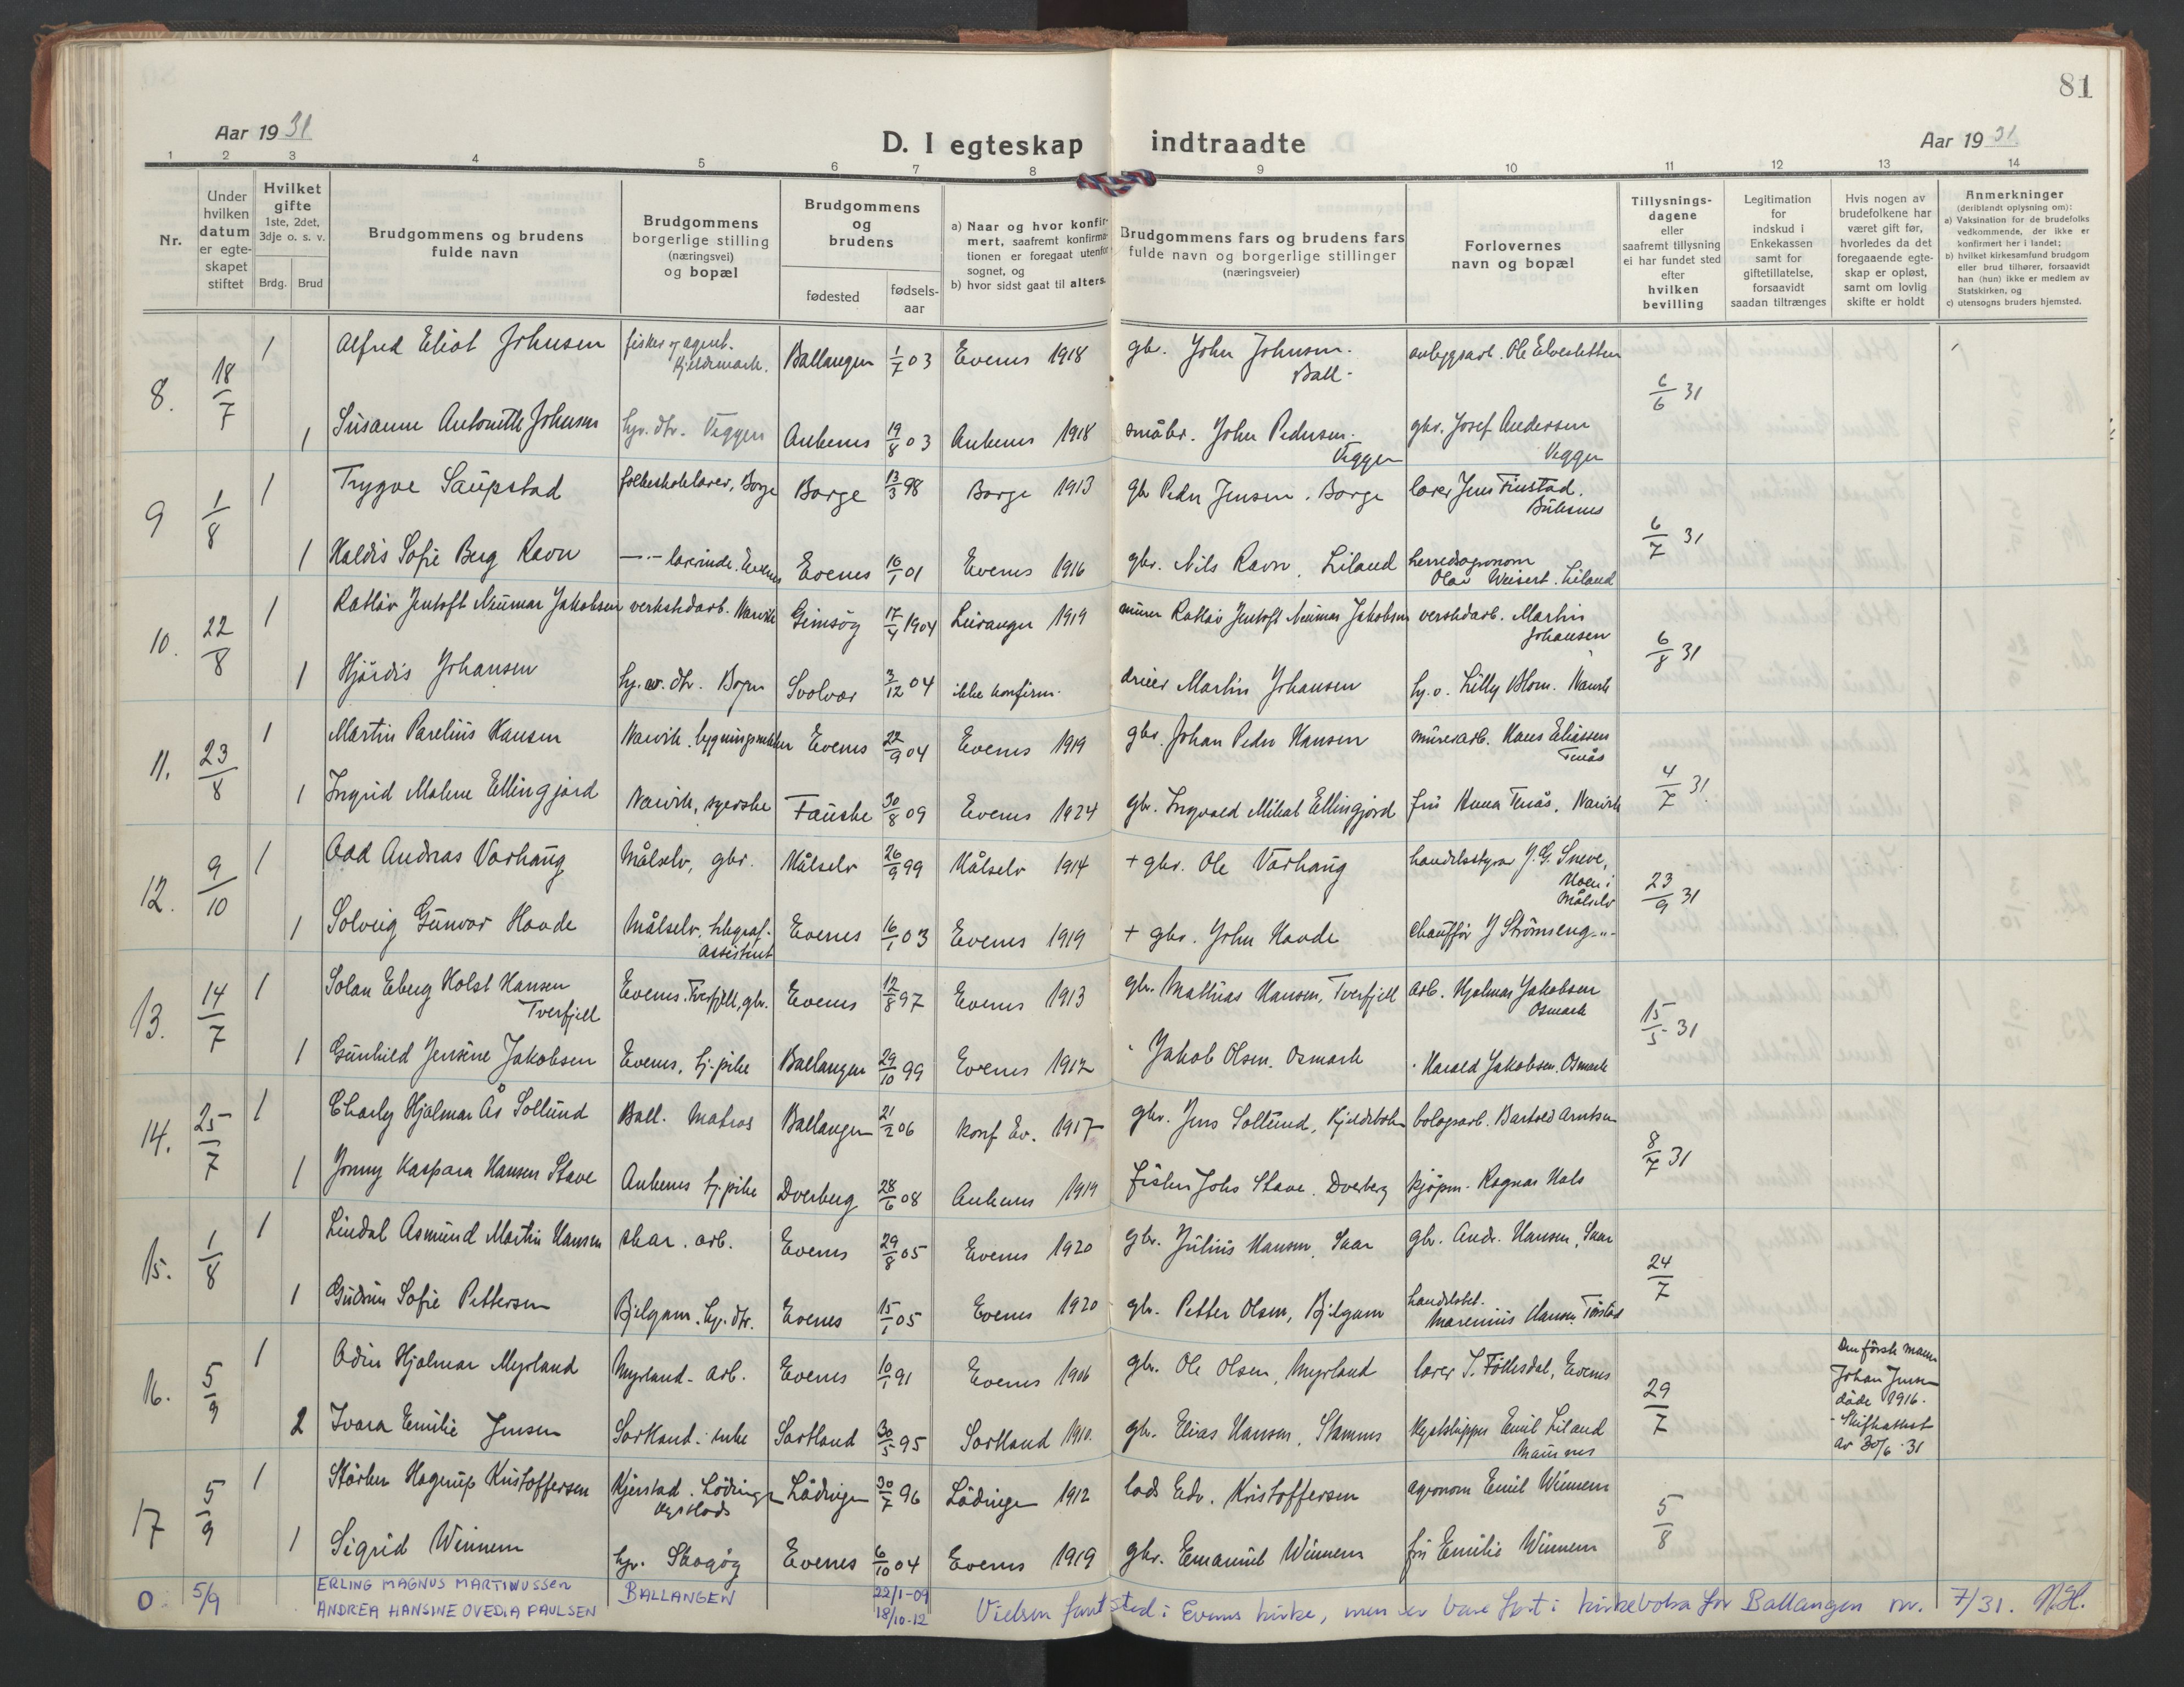 81
Aar 1931
D. I egteskap indtraadte
Aar 1931
1 2 3 4 5 6 7 8 9 10 11 12 13 14
Nr.
Under hvilken datum er egteskapet stiftet
Hvilket gifte 1ste, 2det, 3dje o. s. v.
Brdg. Brud
Brudgommens og brudens fulde navn
Brudgommens borgerlige stilling (næringsvei) og bopæl
Brudgommens og brudens
fødested
fødsels-aar
a) Naar og hvor konfirmert, saafremt konfirmationen er foregaat utenfor sognet, og
b) hvor sidst gaat til alters.
Brudgommens fars og brudens fars fulde navn og borgerlige stillinger (næringsveier)
Forlovernes navn og bopæl
Tillysnings-dagene eller saafremt tillysning ei har fundet sted efter hvilken bevilling
Legitimation for indskud i Enkekassen samt for giftetillatelse, forsaavidt saadan tiltrænges
Hvis nogen av brudefolkene har været gift før, hvorledes da det foregaaende egteskap er opløst, samt om lovlig skifte er holdt
Anmerkninger (deriblandt oplysning om):
a) Vaksination for de brudefolks vedkommende, der ikke er konfirmert her i landet;
b) hvilket kirkesamfund brudgom eller brud tilhører, forsaavidt han (hun) ikke er medlem av Statskirken, og
c) utensogns bruders hjemsted.
8. 18/7 1 Alfred Eliot Johnsen fisker og agent. Kjeldemark. Ballangen 1/7 03 Evenes 1918 gbr. John Johnsen. Ball. anleggsarb. Ole Elvesletten 6/6 31
1 Susanne Antonette Johnsen hjv. dtr. Veggen Ankenes 19/8 03 Ankenes 1918 småbr. John Pedersen. Veggen gbr. Josef Andersen Veggen
9 1/8 1 Trygve Saupstad folkeskolelærer, Borge Borge 13/3 98 Borge 1913 gbr Peder Jensen. Borge lærer Jens Finstad. 6/7 31
1 Haldis Sofie Berg Ravn —"— lærerinde. Evenes Evenes 16/1 01 Evenes 1916 gbr. Nils Ravn, Liland herredsagronom Olav Weisert. Liland
10. 22/8 1 Ratlav Jentoft Neumar Jakobsen verkstedarb. Narvik Gimsøy 17/4 1904 Leiranger 1919 murer Ratlav Jentoft Neumar Jakobsen verkstedarb. Martin Johansen 6/8 31
1 Hjørdis Johansen hj.v. dtr. Bogen Svolvær 3/12 04 ikke konfirm. dreier Martin Johansen hj.v. Lilly Blom. Narvik
11. 23/8 1 Martin Parelius Hansen Narvik. bygningssnekker Evenes 22/9 04 Evenes 1919 gbr. Johan Peder Hansen murerarb. Hans Eliassen Tenås 4/7 31.
1 Ingrid Malene Ellingjord Narvik, syerske Fauske 30/8 09 Evenes 1924 gbr. Ingvald Mikal Ellingjord fru Anna Tenås, Narvik
12. 9/10 1 Odd Andreas Vårhaug Målselv, gbr. Målselv 26/9 99 Målselv 1914 + gbr. Ole Vårhaug handelsstyrer J. G. Sneve, Moen i Målselv 23/9 31
1 Solveig Gunvor Hovde Målselv, telegraf-assistent Evenes 16/1 03 Evenes 1919 + gbr. John Hovde chauffør J Strømseng —"—
13. 14/7 1 Solan Eberg Holst Hansen Tverfjell Evenes. Tverfjell, gbr. Evenes 12/8 97 Evenes 1913 gbr. Mathias Hansen, Tverfjell arb. Hjalmar Jakobsen Osmark 15/5 31
1 Gunhild Jensine Jakobsen Evenes, tj.-pike Ballangen 29/10 99 Evenes 1917 " Jakob Olsen. Osmark " Harald Jakobsen. Osmark
14. 25/7 1 Charly Hjalmar Ås Sollund Ball. matros Ballangen 21/2 06 Konf Ev. 1917 gbr. Jens Sollund, Kjeldebotn bolagsarb. Bartold Arntsen 8/7 31
1 Jonny Kaspara Hansen Stave Ankenes tj. pike Dverberg 28/6 08 Ankenes 1919 fisker Johs Stave. Dverberg kjøpm. Ragnar Hals
15. 1/8 1 Lindal Asmund Martin Hansen skar. arb. Evenes 29/8 05 Evenes 1920 gbr. Julius Hansen, Skar gbr. Andr. Hansen, Skar 24/7
1 Gudrun Sofie Pettersen Bjelgam. hj. dtr. Evenes 15/1 05 Evenes 1920 gbr. Petter Olsen, Bjelgam handelsbet. Marenius Hansen Tårstad
16. 5/9 1 Odin Hjalmar Myrland Myrland - arb. Evenes 10/1 91 Evenes 1906 gbr. Ole Olsen, Myrland lærer T. Follesdal, Evenes 29/7 Den første mann Johan Jensen døde 1916. - Skifteattest av 30/6 - 31
2 Ivara Emilie Jensen Sortland - enke Sortland 30/5 95 Sortland 1910. gbr. Elias Hansen, Stamnes Emil Liland
17 5/9 1 Størker Hagerup Kristoffersen Kjerstad. Lødingen Lødingen 30/7 96 Lødingen 1912 lods Edv. Kristoffersen agronom Emil Winnem 5/8
1 Sigrid Winnem hjv. Skogøy Evenes 6/10 04 Evenes 1919 gbr. Emanuel Winnem fru Emilie Winnem
0 5/9 ERLING MAGNUS MARTINUSSEN BALLANGEN 22/1-09
ANDREA HANSINE OVEDIA PAULSEN 18/10-12 Vielsen fant sted i Evenes kirke, men er bare ført i kirkeboka for Ballangen nr. 7/31. N.H.